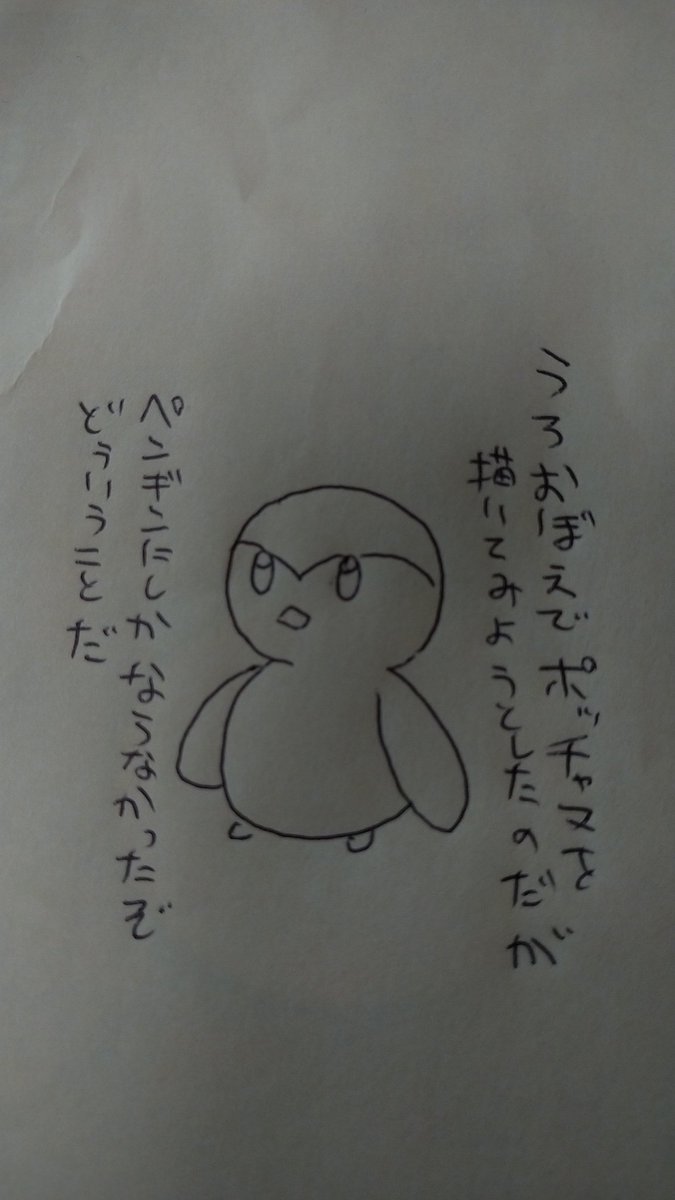 うろおぼえでポッチャマを
描いてみようとしたのだが
ペンギンにしかならなかったぞ
どういうことだ